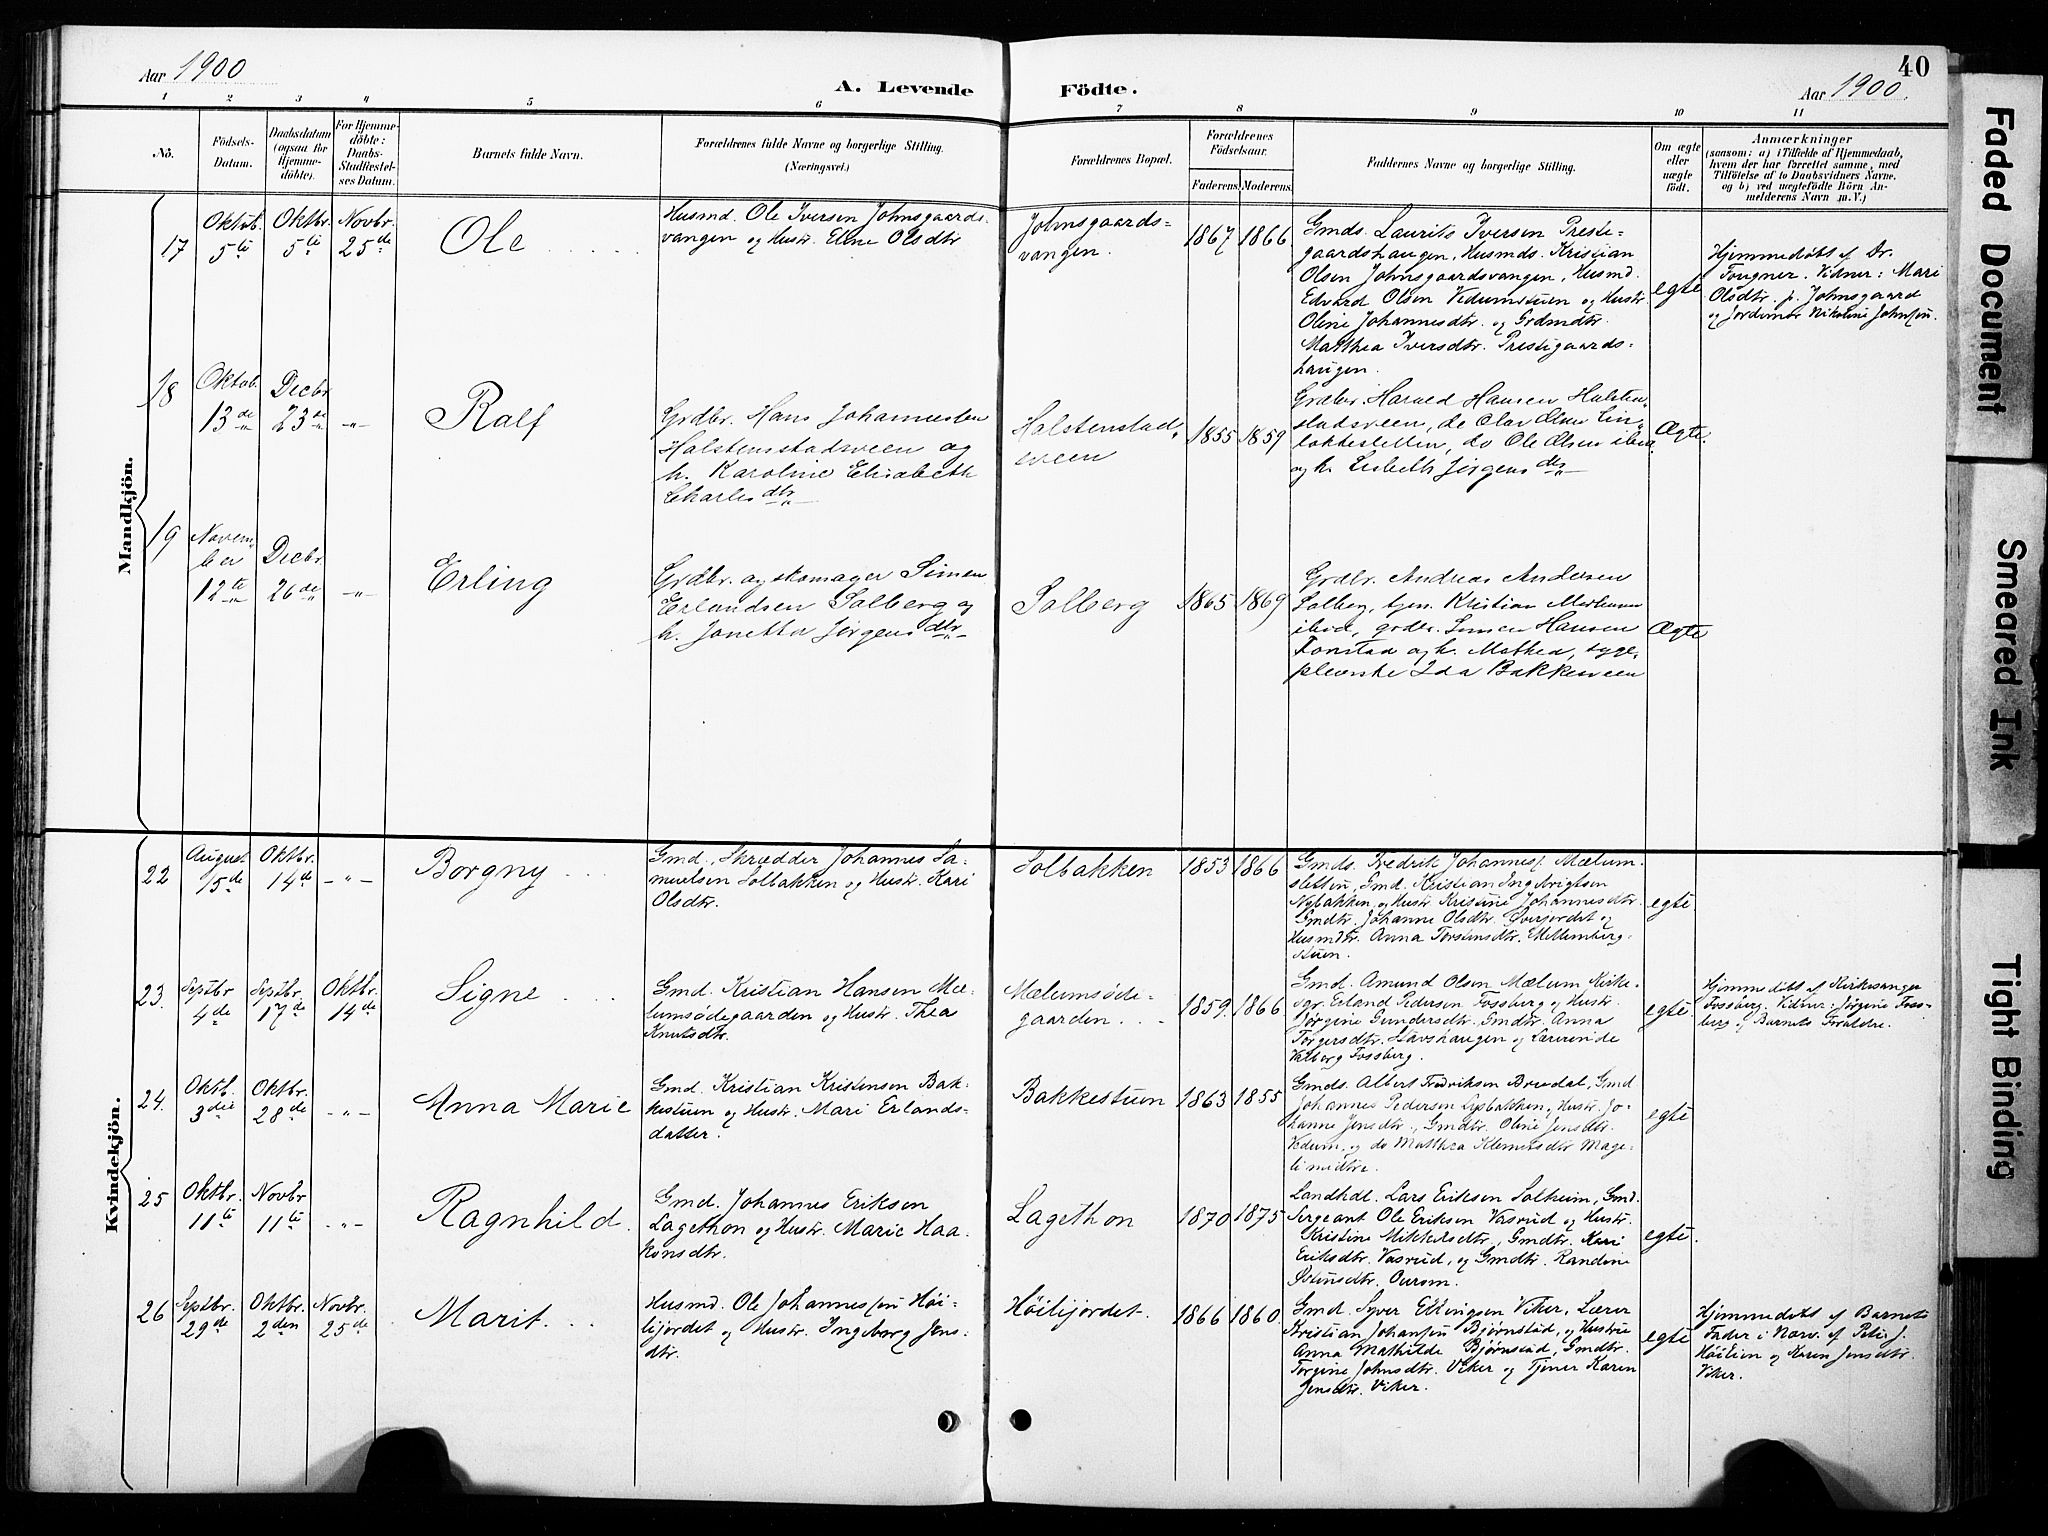 40
Aar 1900
A. Levende Födte.
Aar 1900.
1 2 3 4 5 6 7 8 9 10 11
Nô.
Födsels-
Datum.
Daabsdatum
(ogsaa for
Hjemme-
döbte).
For Hjemme-
döbte:
Daabs-
Stadfæstel-
ses Datum.
Barnets fulde Navn.
Forældrenes fulde Navne og borgerlige Stilling.
(Næringsvei.)
Forældrenes Bopæl.
Forældrenes
Födselsaar.
Faderens. Moderens.
Faddernes Navne og borgerlige Stilling.
Om ægte
eller
uægte
födt.
Anmærkninger
(saasom: a) i Tilfælde af Hjemmedaab,
hvem der har forrettet samme, med
Tilföielse af to Daabsvidners Navne.
og b) ved uægtefödte Börn An-
melderens Navn m.V.)
Mandkjön.
17
Oktob.
5te
Oktbr.
5te
Novbr.
25de
Ole
Husmd. Ole Iversen Johnsgaards-
vangen og Hustr. Eline Olsdtr
Johnsgaards-
vangen.
1867 1866
Gmds. Laurits Iversen Preste-
gaardshaugen, Husmds. Kristian
Olsen Johnsgaardsvangen, Husmd.
Edvard Olsen Vedumstuen og Hustr
Oline Johannesdtr. og Grdmdtr.
Matthea Iversdtr. Prestegaards-
haugen.
egte
Hjemmedøbt af Dr.
Tougner. Vidner: Mari
Olsdtr. p. Johnsgaard
og Jordemor Nikoline Johnsen.
18
Oktob.
13de
Decbr
23de
-"-
Ralf
Grdbr. Hans Johannesen
Halstensstadsveen og
h. Karoline Elisabeth
Charlesdtr
Halstenstad-
sveen
1855 1859
Grdbr. Harald Hansen Halsten-
stadsveen, do Olav Olsen
do Ole Olsen ibid.
og h. Lisbeth Jørgensdtr
Ægte.
19
Novem-
ber
12te
Decbr
26de
-"-
Erling
Grdbr. og skomager Simen
Erlandsen Solberg og
h. Jonetta Jørgensdtr
Solberg
1865 1869
Grdbr. Andreas Andersen
Solberg, tjen. Kristian
ibid, grdbr. Simen Hansen
Fonstad og h. Mathea, syge-
pleierske Ida Bakkesveen
Ægte
Kvindekjön.
22
August
15de
Oktbr.
14de
-"-
Borgny
Gmd., Skrædder Johannes Sa-
muelsen Solbakken og Hustr. Kari
Olsdtr.
Solbakken
1853 1866
Gmds. Fredrik Johannes. Mælum-
sletten, Gmd. Kristian Ingebrigtsen
Nybakken, og Hustr Kristine Johannesdtr.
Gmdtr. Johanne Olsdtr. Øverjordet og
Husmdtr. Anna Torstensdtr. Mellemberg-
stuen.
egte.
23.
Septbr
4de
Septbr.
17de
Oktbr.
14de
Signe
Gmd. Kristian Hansen Mæ-
lumsødegaarden og Hustr. Thea
Knutsdtr.
Mælumsøde-
gaarden.
1859 1866
Gmd. Amund Olsen Mælum, Kirke-
sgr. Erland Pedersen Fossberg og Hustr.
Jørgine Gundersdtr. Gmdtr. Anna
Torgersdtr. Stavshaugen og Lærerinde
Valborg Fossberg.
egte.
Hjemmedøbt af Kirkesanger
Fossberg. Vidner: Jørgine Foss-
berg og Barnets Forældre.
24.
Oktb.
3die
Oktbr.
28de
-"-
Anna Marie
Gmd. Kristian Kristensen Bak-
kestuen og Hustr. Mari Erlands-
datter.
Bakkestuen
1863 1855
Gmds. Albert Fredriksen Bredal, Gmd
Johannes Pedersen Lysbakken, og Hustr. Jo-
hanne Jensdtr., Gmdtr. Oline Jensdtr.
Vedum, og do Matthea Klemetsdtr Mage-
li midtre.
egte
25
Oktbr.
11te
Novbr
11te
-"-
Ragnhild.
Gmd. Johannes Eriksen
Lagethon og Hustr. Marie Haa-
konsdtr.
Lagethon
1870 1875
Landhdl. Lars Eriksen Solheim, Gmd.
Sergeant Ole Eriksen Vasrud og Hustr.
Kristine Mikkelsdtr., Gmdtr. Kari
Eriksdtr. Vasrud, og Gmdtr. Randine
Østensdtr. Aurom.
egte.
26
Septbr.
29de
Oktbr.
2den
Novbr.
25de
Marit.
Husmd. Ole Johannessen Høi-
lijordet og Hustr. Ingeborg Jens-
dtr.
Høilijordet.
1866 1860.
Gmd. Syver Ellingsen Viker, Lærer
Kristian Johansen Bjørnstad, og Hustru
Anna Mathilde Bjørnstad, Gmdtr.
Torgine Johnsdtr. Viker og Tjener Karen
Jensdtr. Viker.
egte
Hjemmedøbt af Barnets
Fader i Nærv. af Peter J.
Høilien og Karen Jensdtr.
Viker.
Faded Document
Smeared Ink
Tight Binding